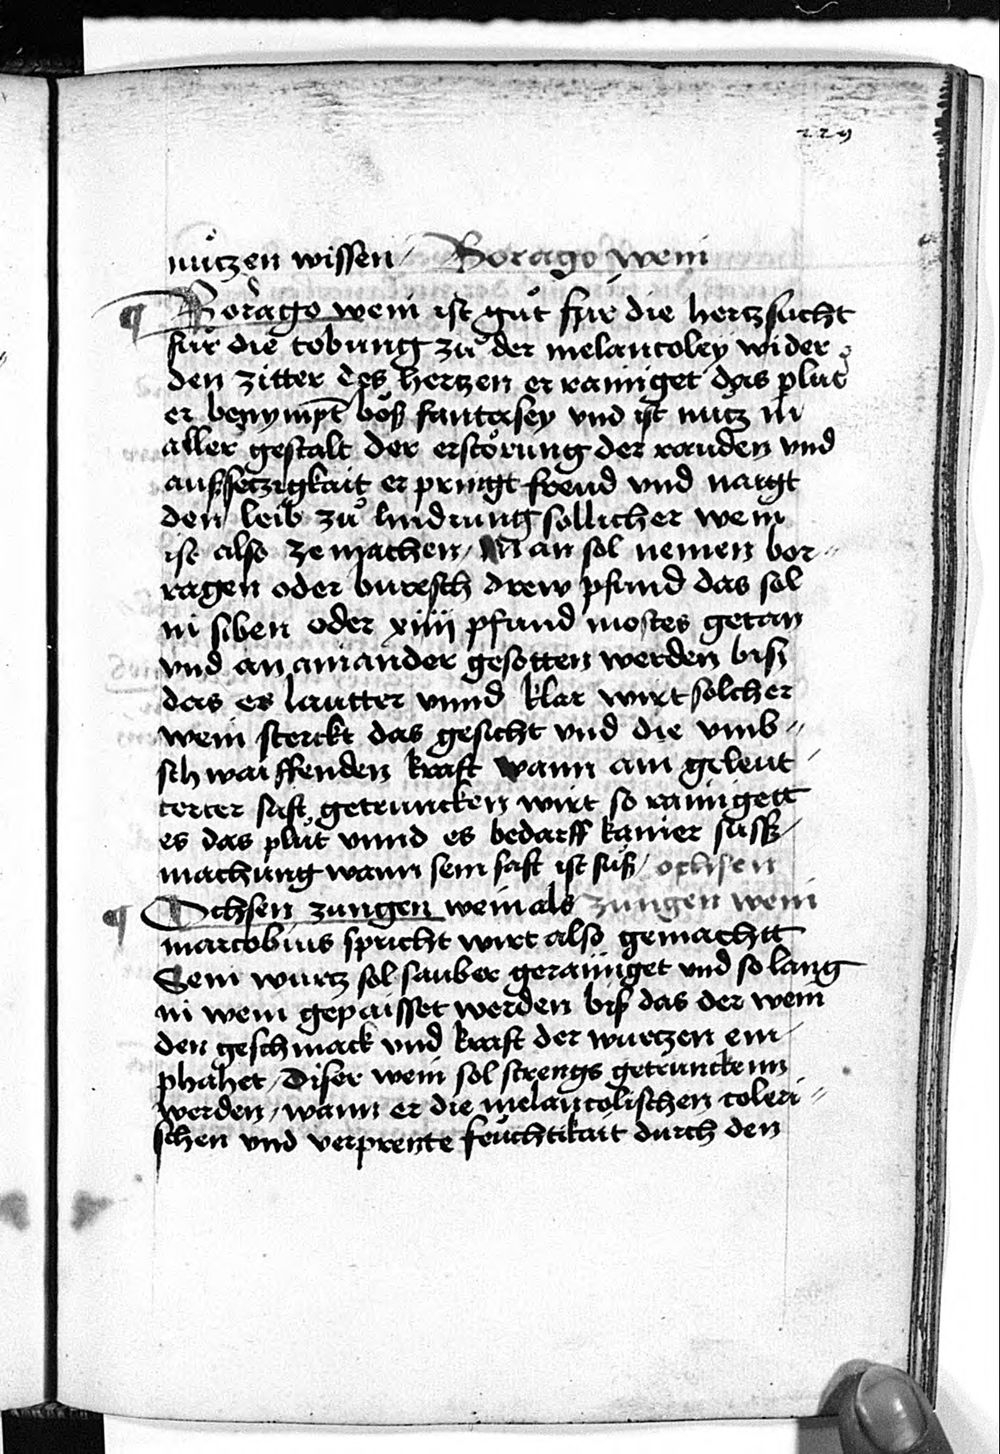 229
nützen wissen / Borago wein
¶ Borago wein ist gůt für die hertzsucht
für die tobung zů der melancoley wider
den zitter des hertzen er rainiget das plůt
er benympt böß fantasey vnd ist nutz in
aller gestalt der erstörung der rauden vnd
aufsetzigkait er pringt freud vnd naigt
den leib zů lindrung sollicher wein
ist also ze machen / Man sol nemen bor-
ragen oder buretsch drew pfund das sol
in siben oder xiiij pfund mostes getan
vnd an ainander gesotten werden biß
das es lautter vnnd klar wirt solcher
wein sterckt das gesicht vnd die vmb-
schwaiffenden kraft wann ain geleut-
terter saft getruncken wirt so rainigett
es das plůt vnnd es bedarff kainer süß-
machung wann sein saft ist süß / ochsen
¶ Ochsen zungen wein als zungen wein
marcobius spricht wirt also gemachtt
Sein wurtz sol sauber gerainiget vnd so lang
in wein gepaisset werden biß das der wein
den geschmack vnd kraft der wurtzen em-
phahet / Diser wein sol strengs getrunckenn
werden / wann er die melancolischen coleri-
schen vnd verprente feüchtikait durch den